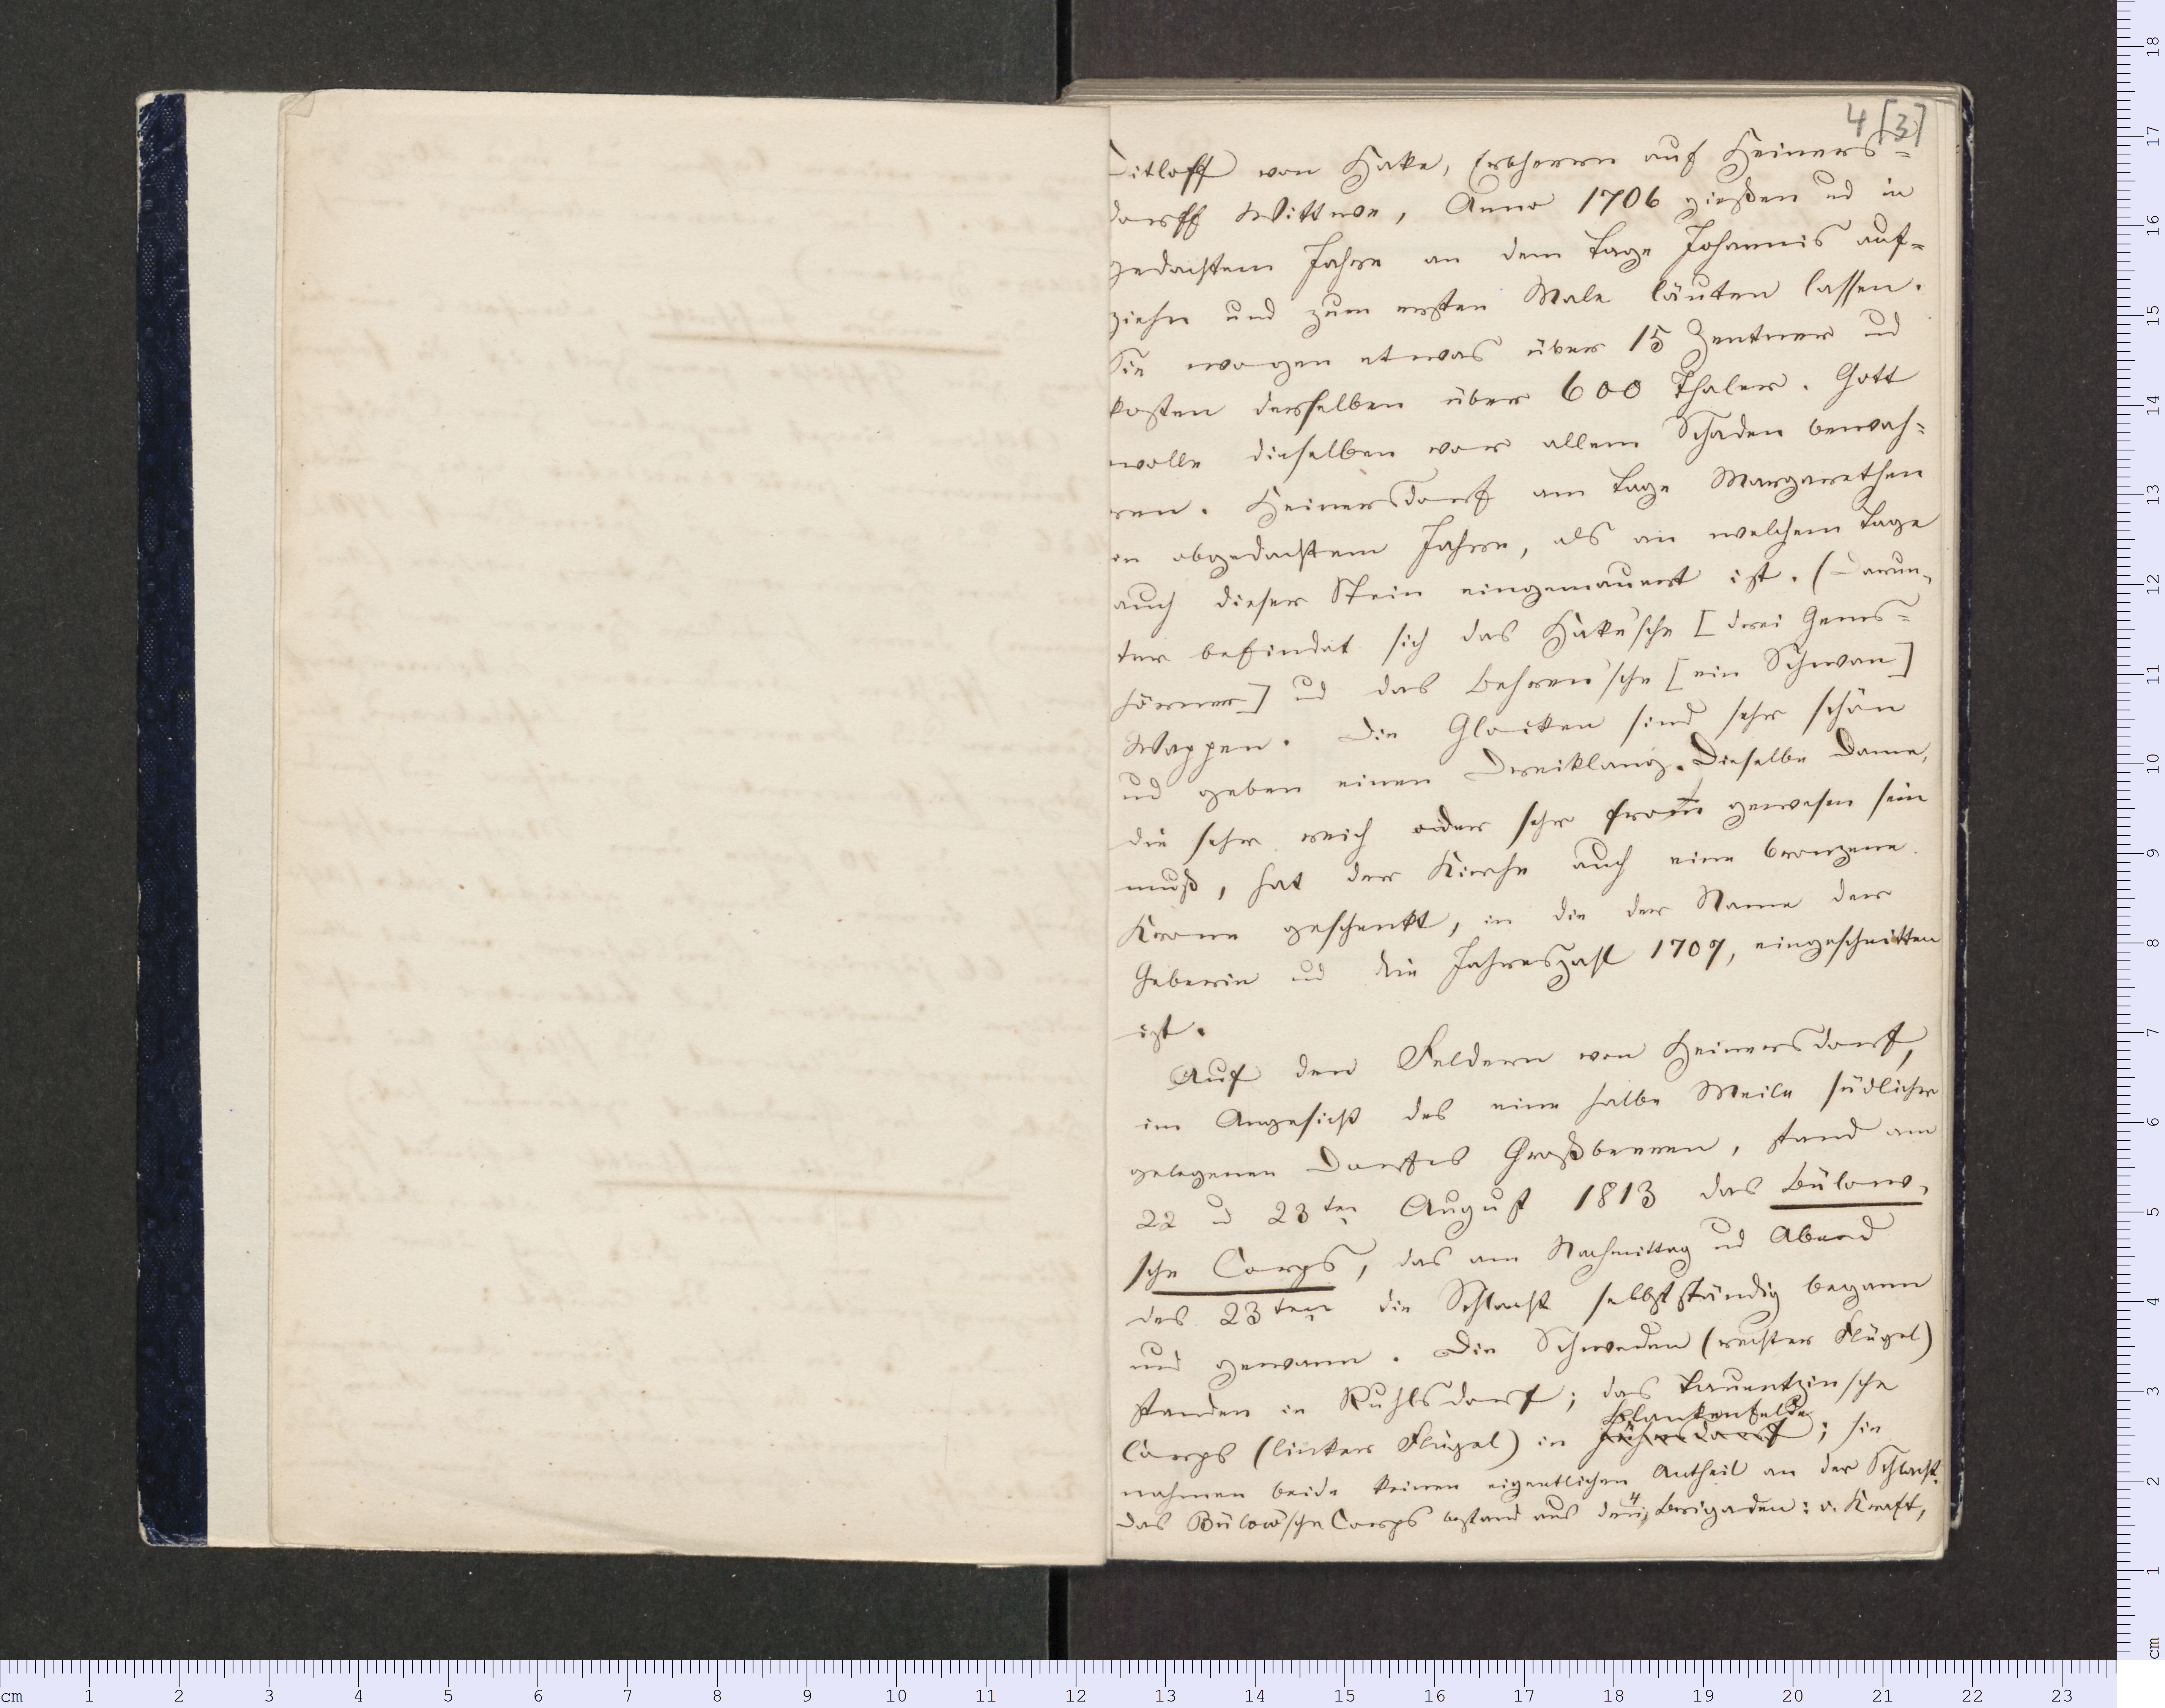 4 [3]
Ditloff von Hake, Erbherrn auf Heiners=
dorff Wittwe, Anno 1706 gießen ud in
gedachtem Jahre an dem Tage Johannis auf=
ziehn und zum ersten Male läuten lassen.
Sie wogen etwas über 15 Zentner ud
kosten derselben über 600 Thaler. Gott
wolle dieselben vor allem Schaden bewah=
ren. Heinersdorf am Tage Margarethen
in obgedachtem Jahre, als an welchem Tage
auch dieser Stein eingemauert ist. (Darun-
ter befindet sich das Hake'sche [drei Gems=
hörner] ud das Behren'sche [ein Schwan]
Wappen. Die Glocken sind sehr schön
ud geben einen Dreiklang. Dieselbe Dame,
die sehr reich oder sehr from̄ gewesen sein
muß, hat der Kirche auch eine bronzene
Krone geschenkt, in die der Name der
Geberin ud die Jahreszahl 1707, eingeschnitten
ist.
Auf den Feldern von Heinersdorf,
im Angesicht des eine halbe Meile südlicher
gelegenen Dorfes Großbeeren, stand am
22 u 23ten August 1813 das Bülow-
sche Corps, das am Nachmittag ud Abend
des 23ten die Schlacht selbstständig begann
und gewann. Die Schweden (rechter Flügel)
standen in Ruhlsdorf; das Tauentzinsche
Blankenfelde
Corps (linker Flügel) in Jühnsdorf; sie
nahmen beide keinen eigentlichen Antheil an der Schlacht.
4
Das Bülow'sche Corps bestand aus den Brigaden: v. Kraft,